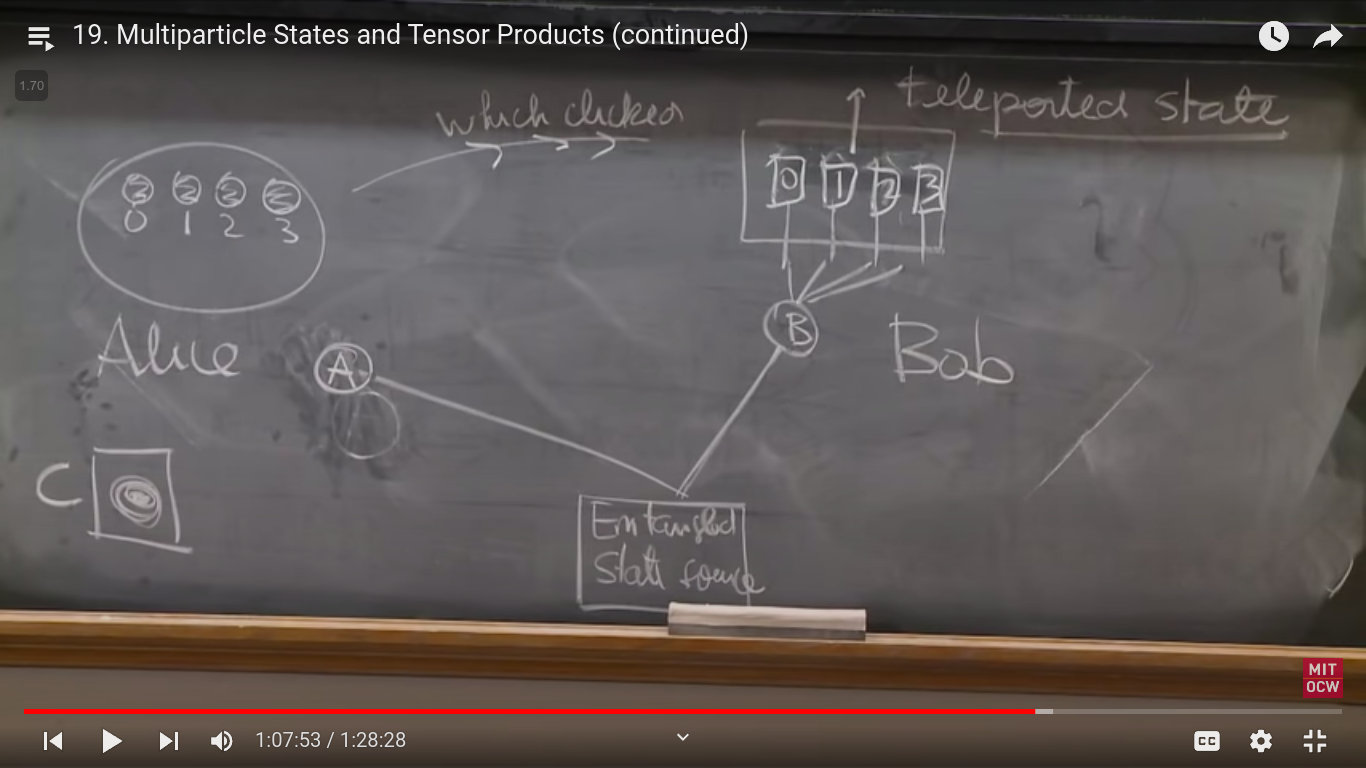 19. Multiparticle States and Tensor Products (continued)
1.70
which clicked
teleported state
0 1 2 3
0 1 2 3
B
Bob
Alice
A
C
Entangled
State source
MIT
OCW
1:07:53 / 1:28:28
CC